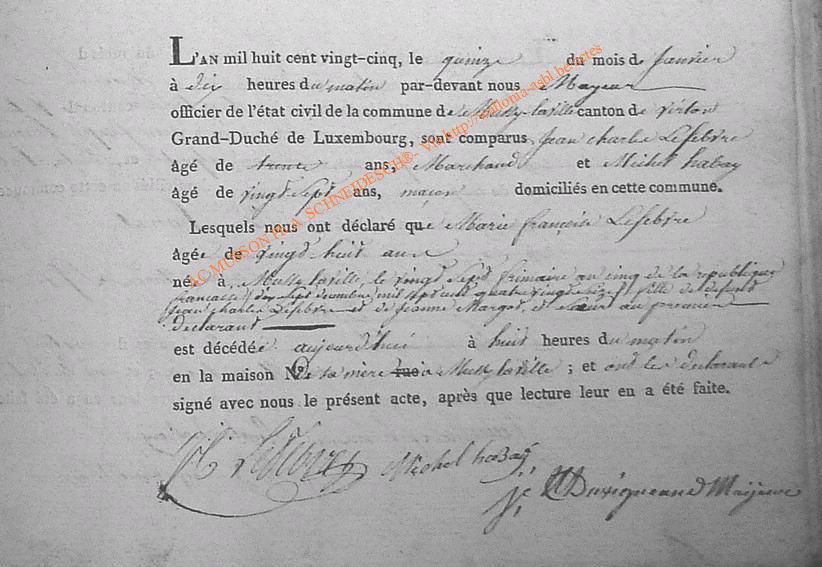 L'AN mil huit cent vingt-cinq, le quinze du mois de Janvier
à dix heures du matin par-devant nous Mayeur
officier de l'état civil de la commune de Mussy-laville canton de virton
Grand-Duché de Luxembourg, sont comparus Jean charle Lefebvre
âgé de trente ans, Marchand et Michel habay
âgé de vingt sept ans, maçon domiciliés en cette commune.
Lesquels nous ont déclaré que Marie françoise Lefebvre
âgée de vingt-huit ans
née à Mussy laville, le vingt sept frimaire an cinq de la republique
francaise dix sept decembre mil sept cent quatre vingt seize fille de defunt
Jean charle Lefebvre et de Jeanne Margot, et sœur au premier
declarant
est décédée aujourd'hui à huit heures du matin
en la maison de sa mere rue à Mussy laville ; et ont les declarants
signé avec nous le présent acte, après que lecture leur en a été faite.
Lefebvre Michel habay
Mayeur
AC MUSSON PAR A. SCHNEIDESCH®- Via http://www.ationia-asbl.be/actes